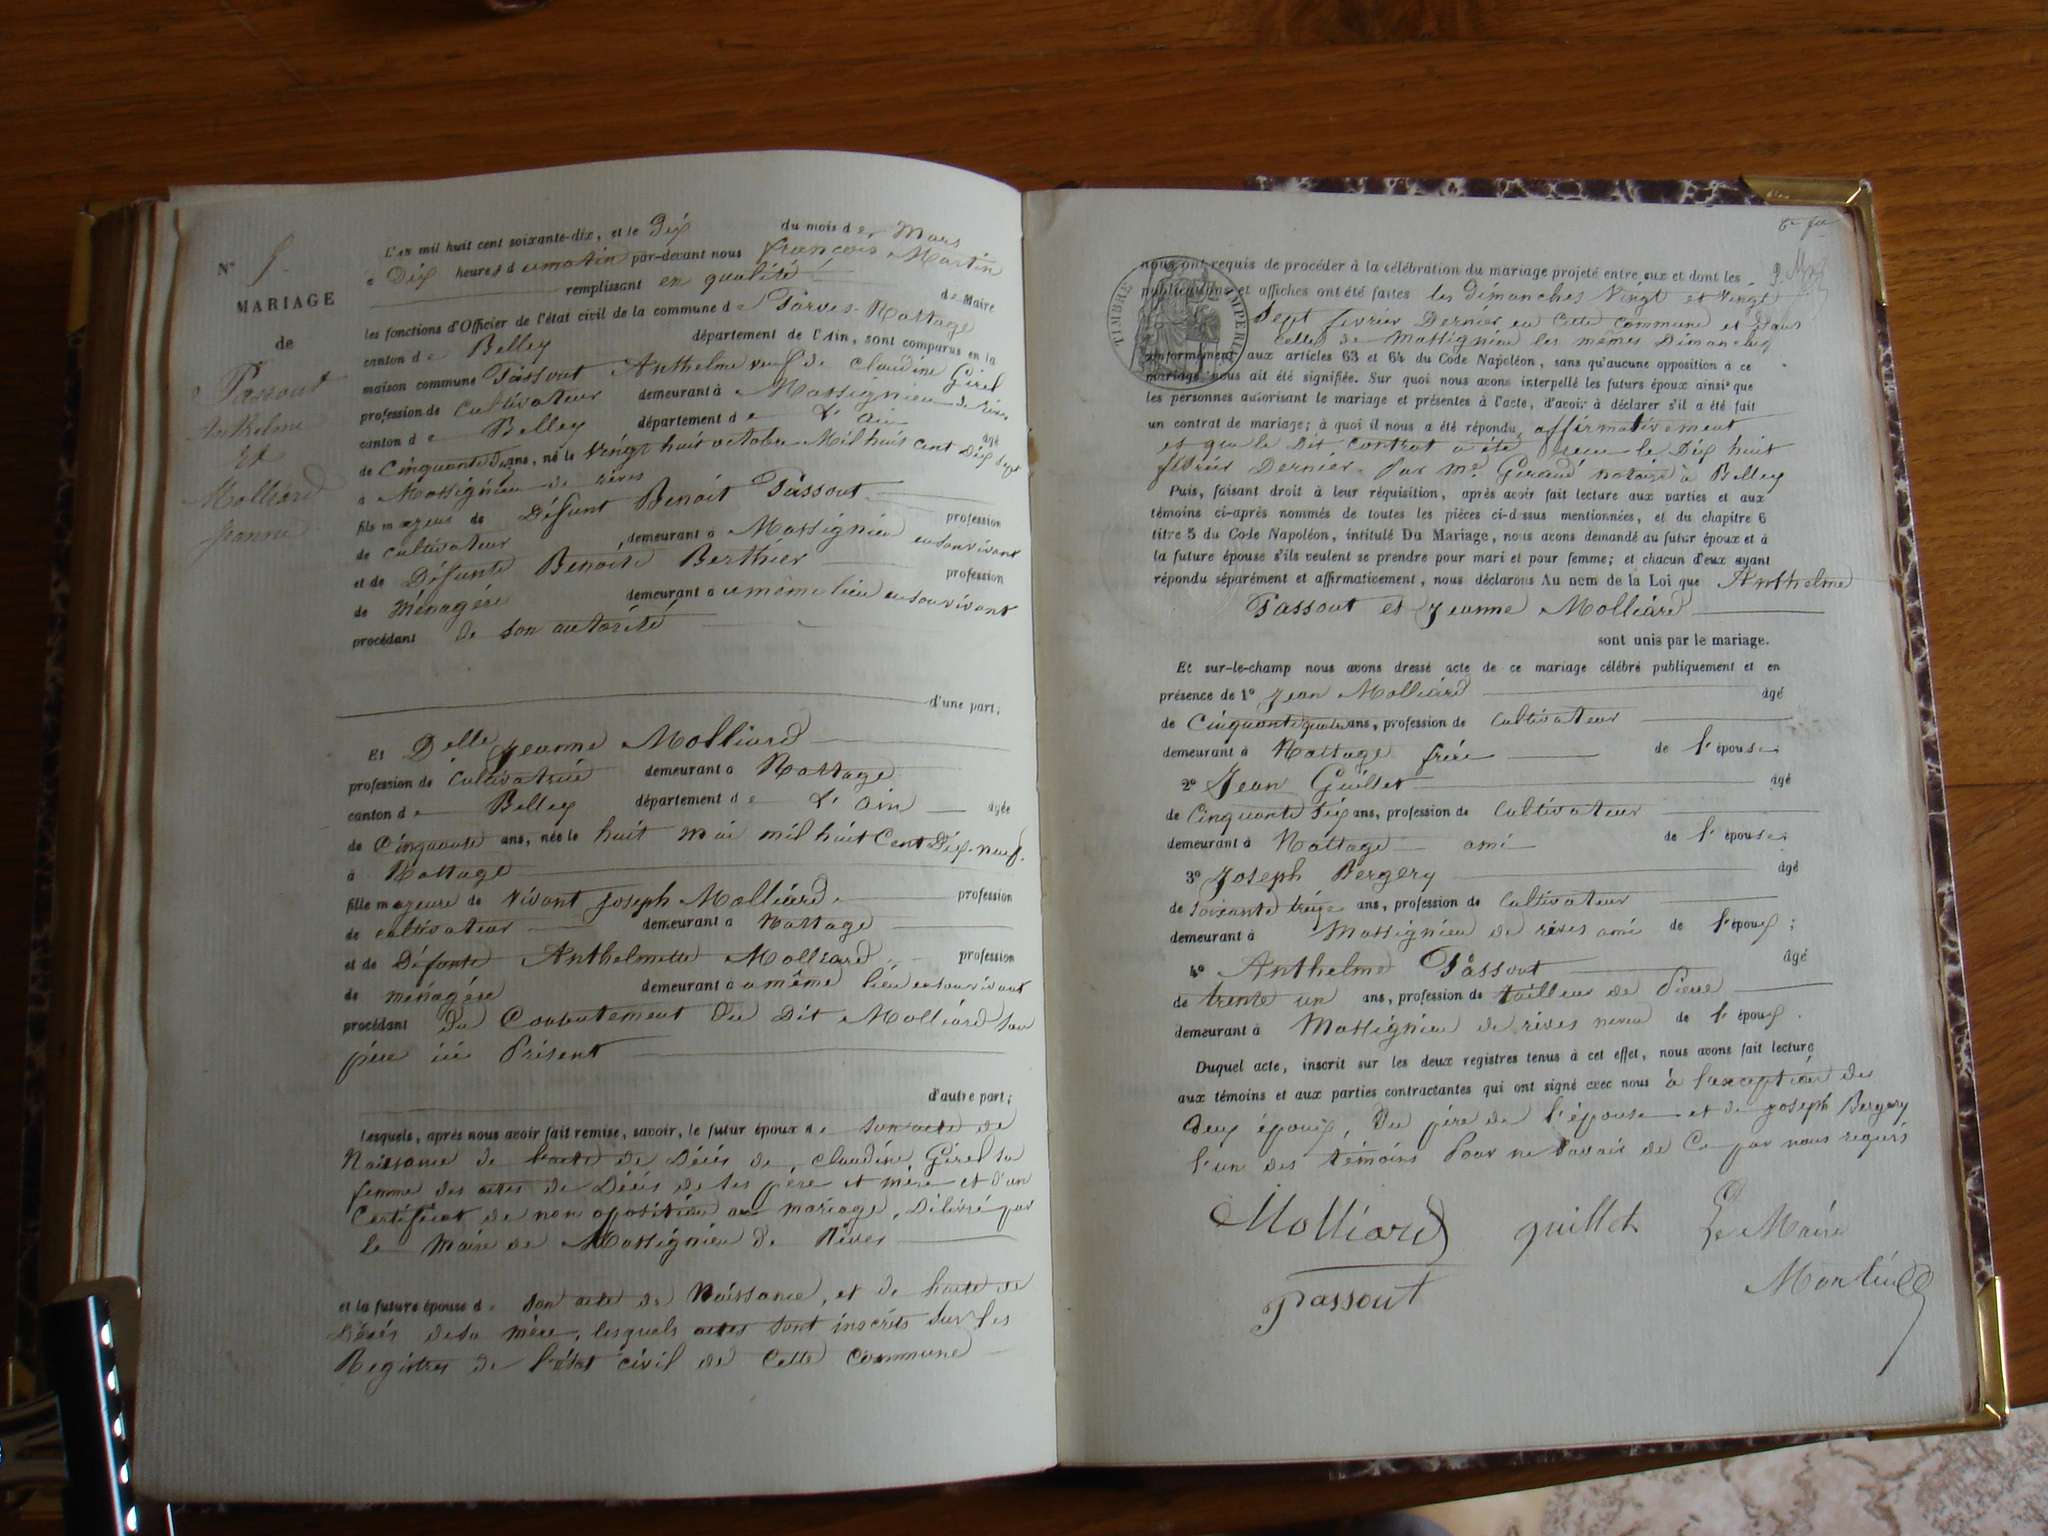 N° 5
MARIAGE
de
Passout
Anthelme
et
Molliard
Jeanne
L'an mil huit cent soixante-dix, et le Dix du mois de Mars
à Dix heures du matin par-devant nous françois Martin
remplissant en qualité de Maire
les fonctions d'Officier de l'état civil de la commune de Parves-Nattage
canton de Belley département de l'Ain, sont comparus en la
maison commune Passout Anthelme veuf de Claudine Girel
profession de cultivateur demeurant à Massignieu de rives
canton de Belley département de L'ain âgé
de Cinquante Deux ans, né le Vingt huit octobre Mil huit cent Dix sept
à Massignieu de rives
fils majeur de Défunt Benoit Passout profession
de cultivateur, demeurant à Massignieu en son vivant
et de Défunte Benoite Berthier profession
de Ménagère demeurant à ce même lieu en son vivant
procédant de son autorité
d'une part;
Et Delle Jeanne Molliard
profession de Cultivatrice demeurant à Nattage
canton de Belley département de L'ain âgée
de Cinquante ans, née le huit mai mil huit Cent Dix-neuf.
à Nattage
fille majeure de vivant Joseph Molliard profession
de cultivateur demeurant à Nattage
et de Défunte Anthelmette Molliard profession
de ménagère demeurant à ce même lieu en son vivant
procédant du Consentement du Dit Molliard son
père ici Présent
d'autre part;
Lesquels, après nous avoir fait remise, savoir, le futur époux de son acte de
Naissance de l'acte de Décès de Claudine Girel sa
femme des actes de Décès de ses père et mère et d'un
Certificat de non oposition au mariage, Délivré par
le Maire de Massignieu de Rives
et la future épouse de son acte de Naissance, et de l'acte de
Décès de sa mère, lesquels actes sont inscrits sur les
Registres de l'état civil de Cette Commune
TIMBRE IMPERIAL
nous ont requis de procéder à la célébration du mariage projeté entre eux et dont les
publications et affiches ont été faites les Dimanches Vingt et Vingt
Sept fevrier Dernier en Cette commune et Dans
celle de Massignieu les mêmes Dimanches
conformément aux articles 63 et 64 du Code Napoléon, sans qu'aucune opposition à ce
mariage nous ait été signifiée. Sur quoi nous avons interpellé les futurs époux ainsi que
les personnes autorisant le mariage et présentes à l'acte, d'avoir à déclarer s'il a été fait
un contrat de mariage; à quoi il nous a été répondu affirmativement
et que le Dit contrat a été reçu le Dix huit
février Dernier par Me Giraud notaire à Belley
Puis, faisant droit à leur réquisition, après avoir fait lecture aux parties et aux
témoins ci-après nommés de toutes les pièces ci-dessus mentionnées, et du chapitre 6
titre 5 du Code Napoléon, intitulé Du Mariage, nous avons demandé au futur époux et à
la future épouse s'ils veulent se prendre pour mari et pour femme; et chacun d'eux ayant
répondu séparément et affirmativement, nous déclarons Au nom de la Loi que Anthelme
Passout et Jeanne Molliard
sont unis par le mariage.
Et sur-le-champ nous avons dressé acte de ce mariage célébré publiquement et en
présence de 1° Jean Molliard âgé
de Cinquante quatre ans, profession de cultivateur
demeurant à Nattage frère de l'épouse
2° Jean Guillet âgé
de Cinquante Dix ans, profession de cultivateur
demeurant à Nattage ami de l'épouse
3° Joseph Bergery âgé
de soixante treize ans, profession de cultivateur
demeurant à Massignieu de rives ami de l'époux;
4° Anthelme Passout âgé
de trente un ans, profession de tailleur de Pierre
demeurant à Massignieu de rives neveu de l'époux.
Duquel acte, inscrit sur les deux registres tenus à cet effet, nous avons fait lecture
aux témoins et aux parties contractantes qui ont signé avec nous à l'exception des
Deux époux, Du père de l'épouse et de Joseph Bergery
l'un des témoins Pour ne savoir de Ce par nous requis
Molliard guillet Le Maire
Passout Martin